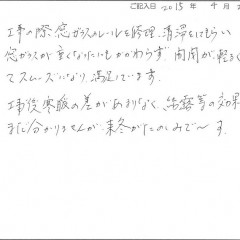 ご記入日 2015 年 4 月
工事の際、窓ガラスのレールを修理、清澤をはもらい
窓ガラスが重くなったにもかかわらず、開閉が軽く
てスムーズになり、満足しています。
工事後寒暖の差があまりなく、結露等の効果
まだ分かりませんが、来冬がたのしみで〜す。